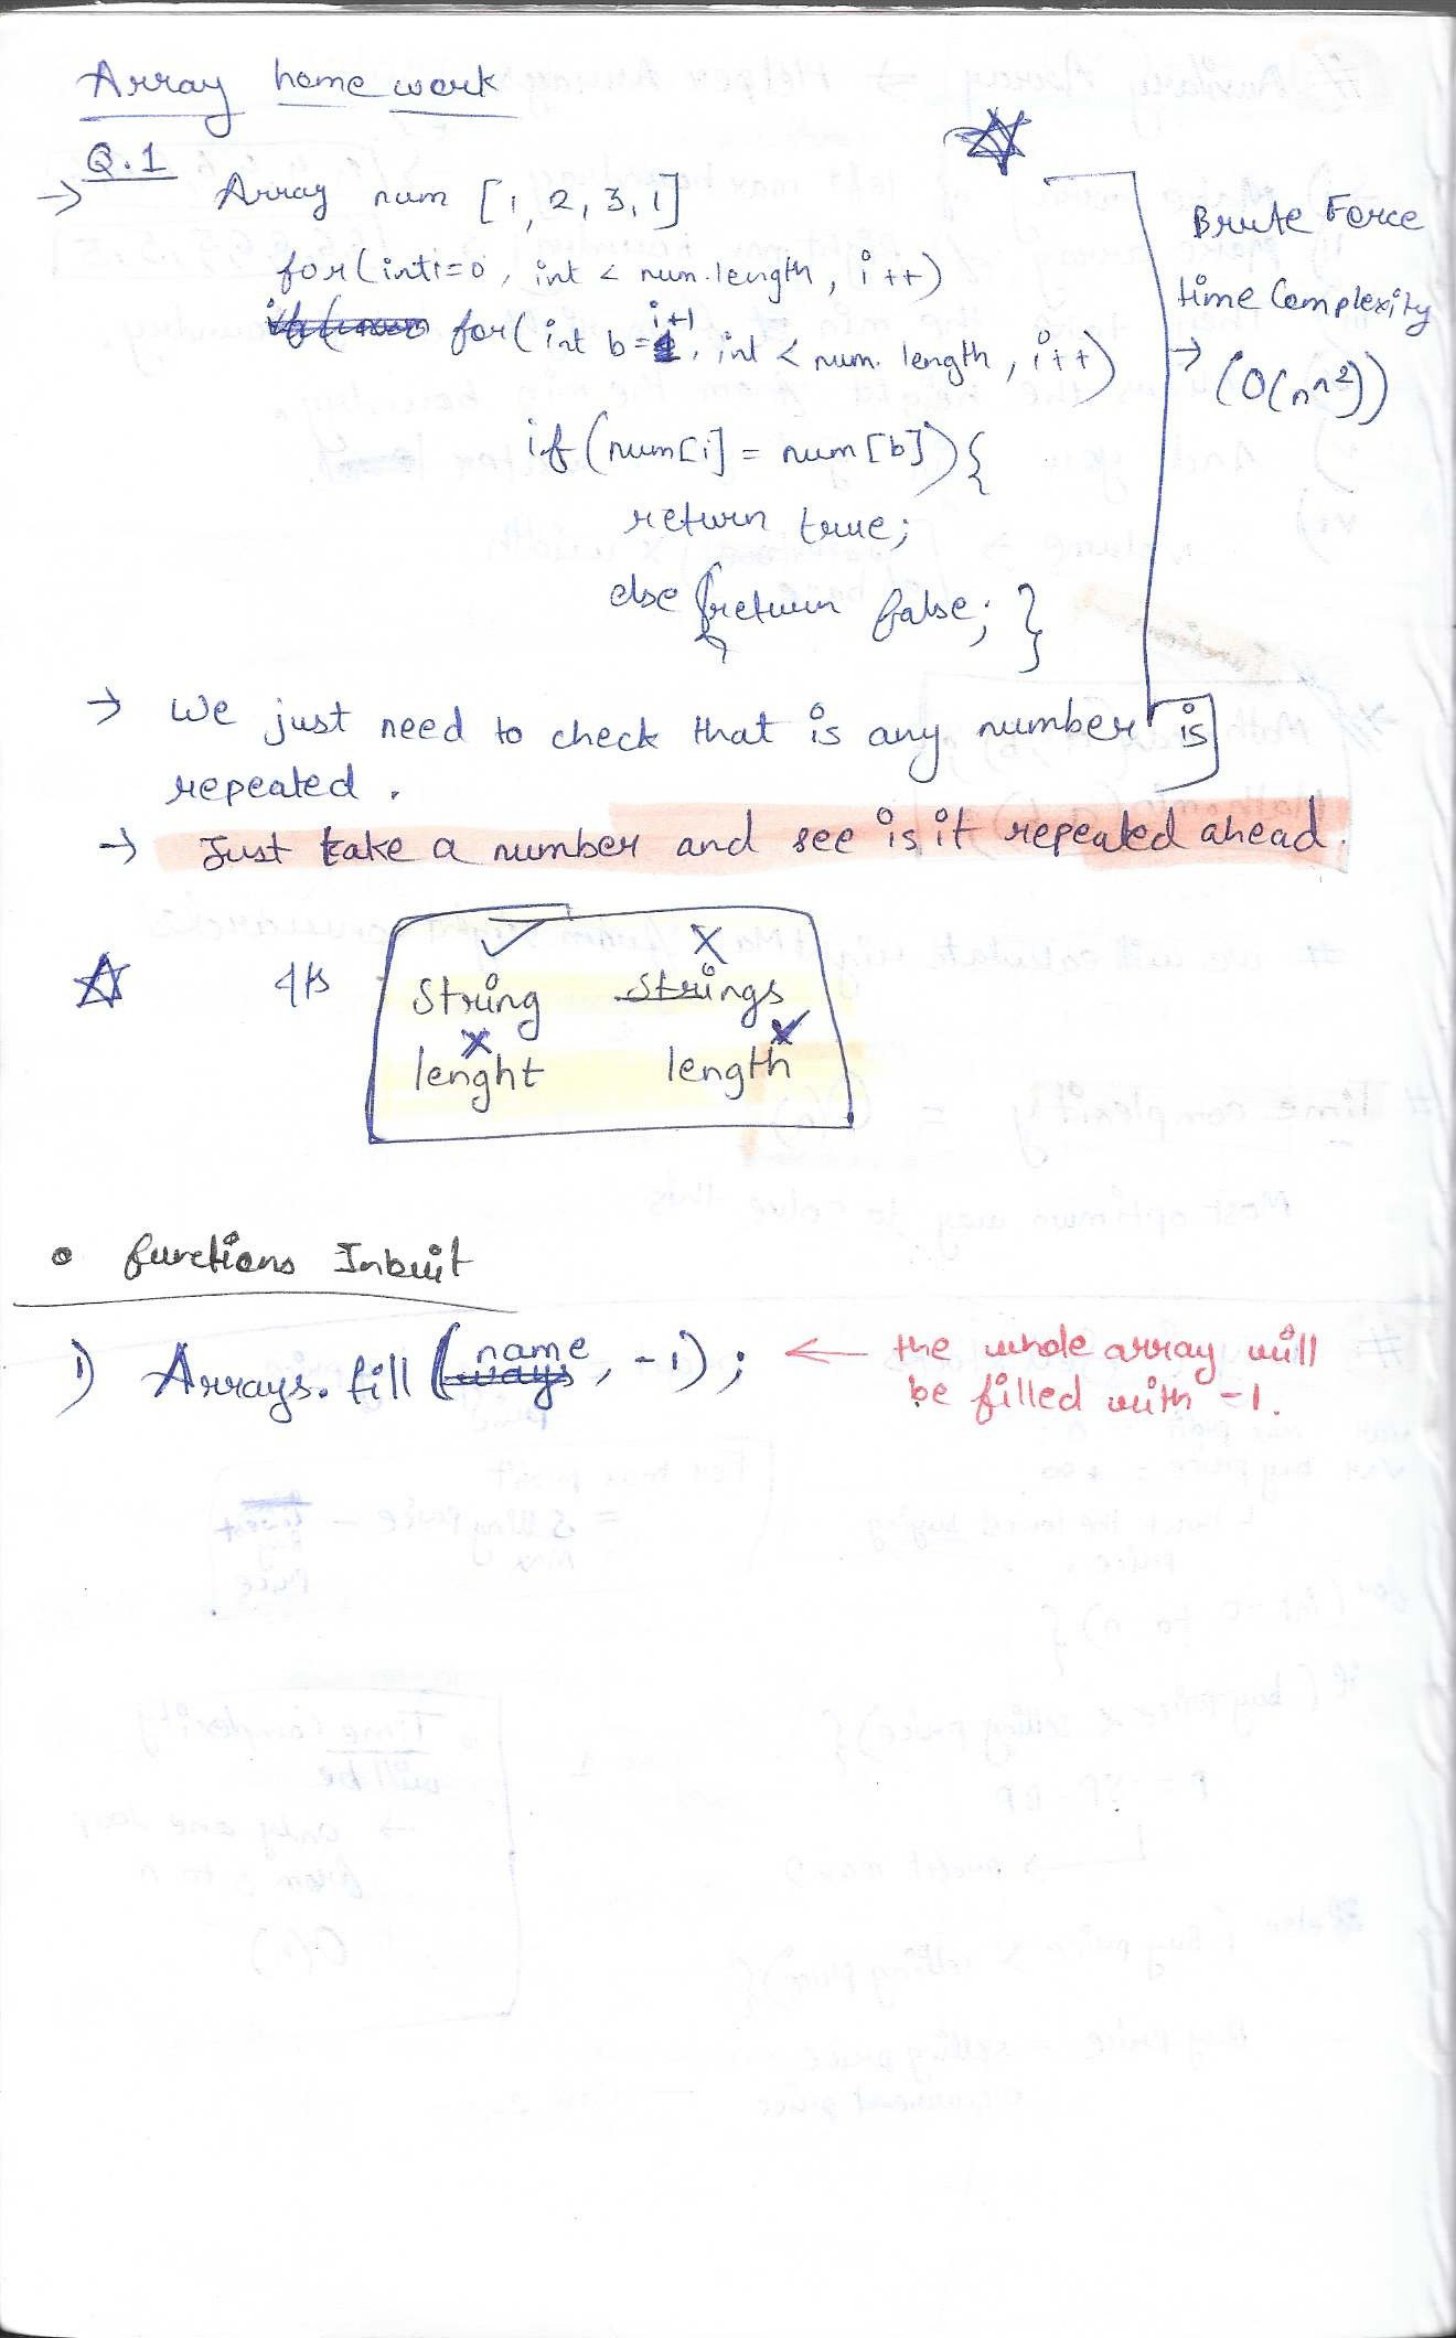 Array home work
Q.1
→ Array num [1, 2, 3, 1]
for(int i=0, int < num.length, i++)
for(int b=i+1, int < num. length, i++)
if(num[i] = num[b]){
return true;
else {return false; }
}
Brute Force
time Complexity
→ (O(n^2))
→ We just need to check that is any number is
repeated.
→ Just take a number and see is it repeated ahead.
✓ X
String Strings
X ✓
lenght length
• functions Inbuit
1) Arrays.fill (name, -1); ← the whole array will
be filled with -1.